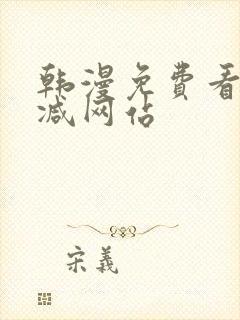 韩漫免费看
减网佔
宋義